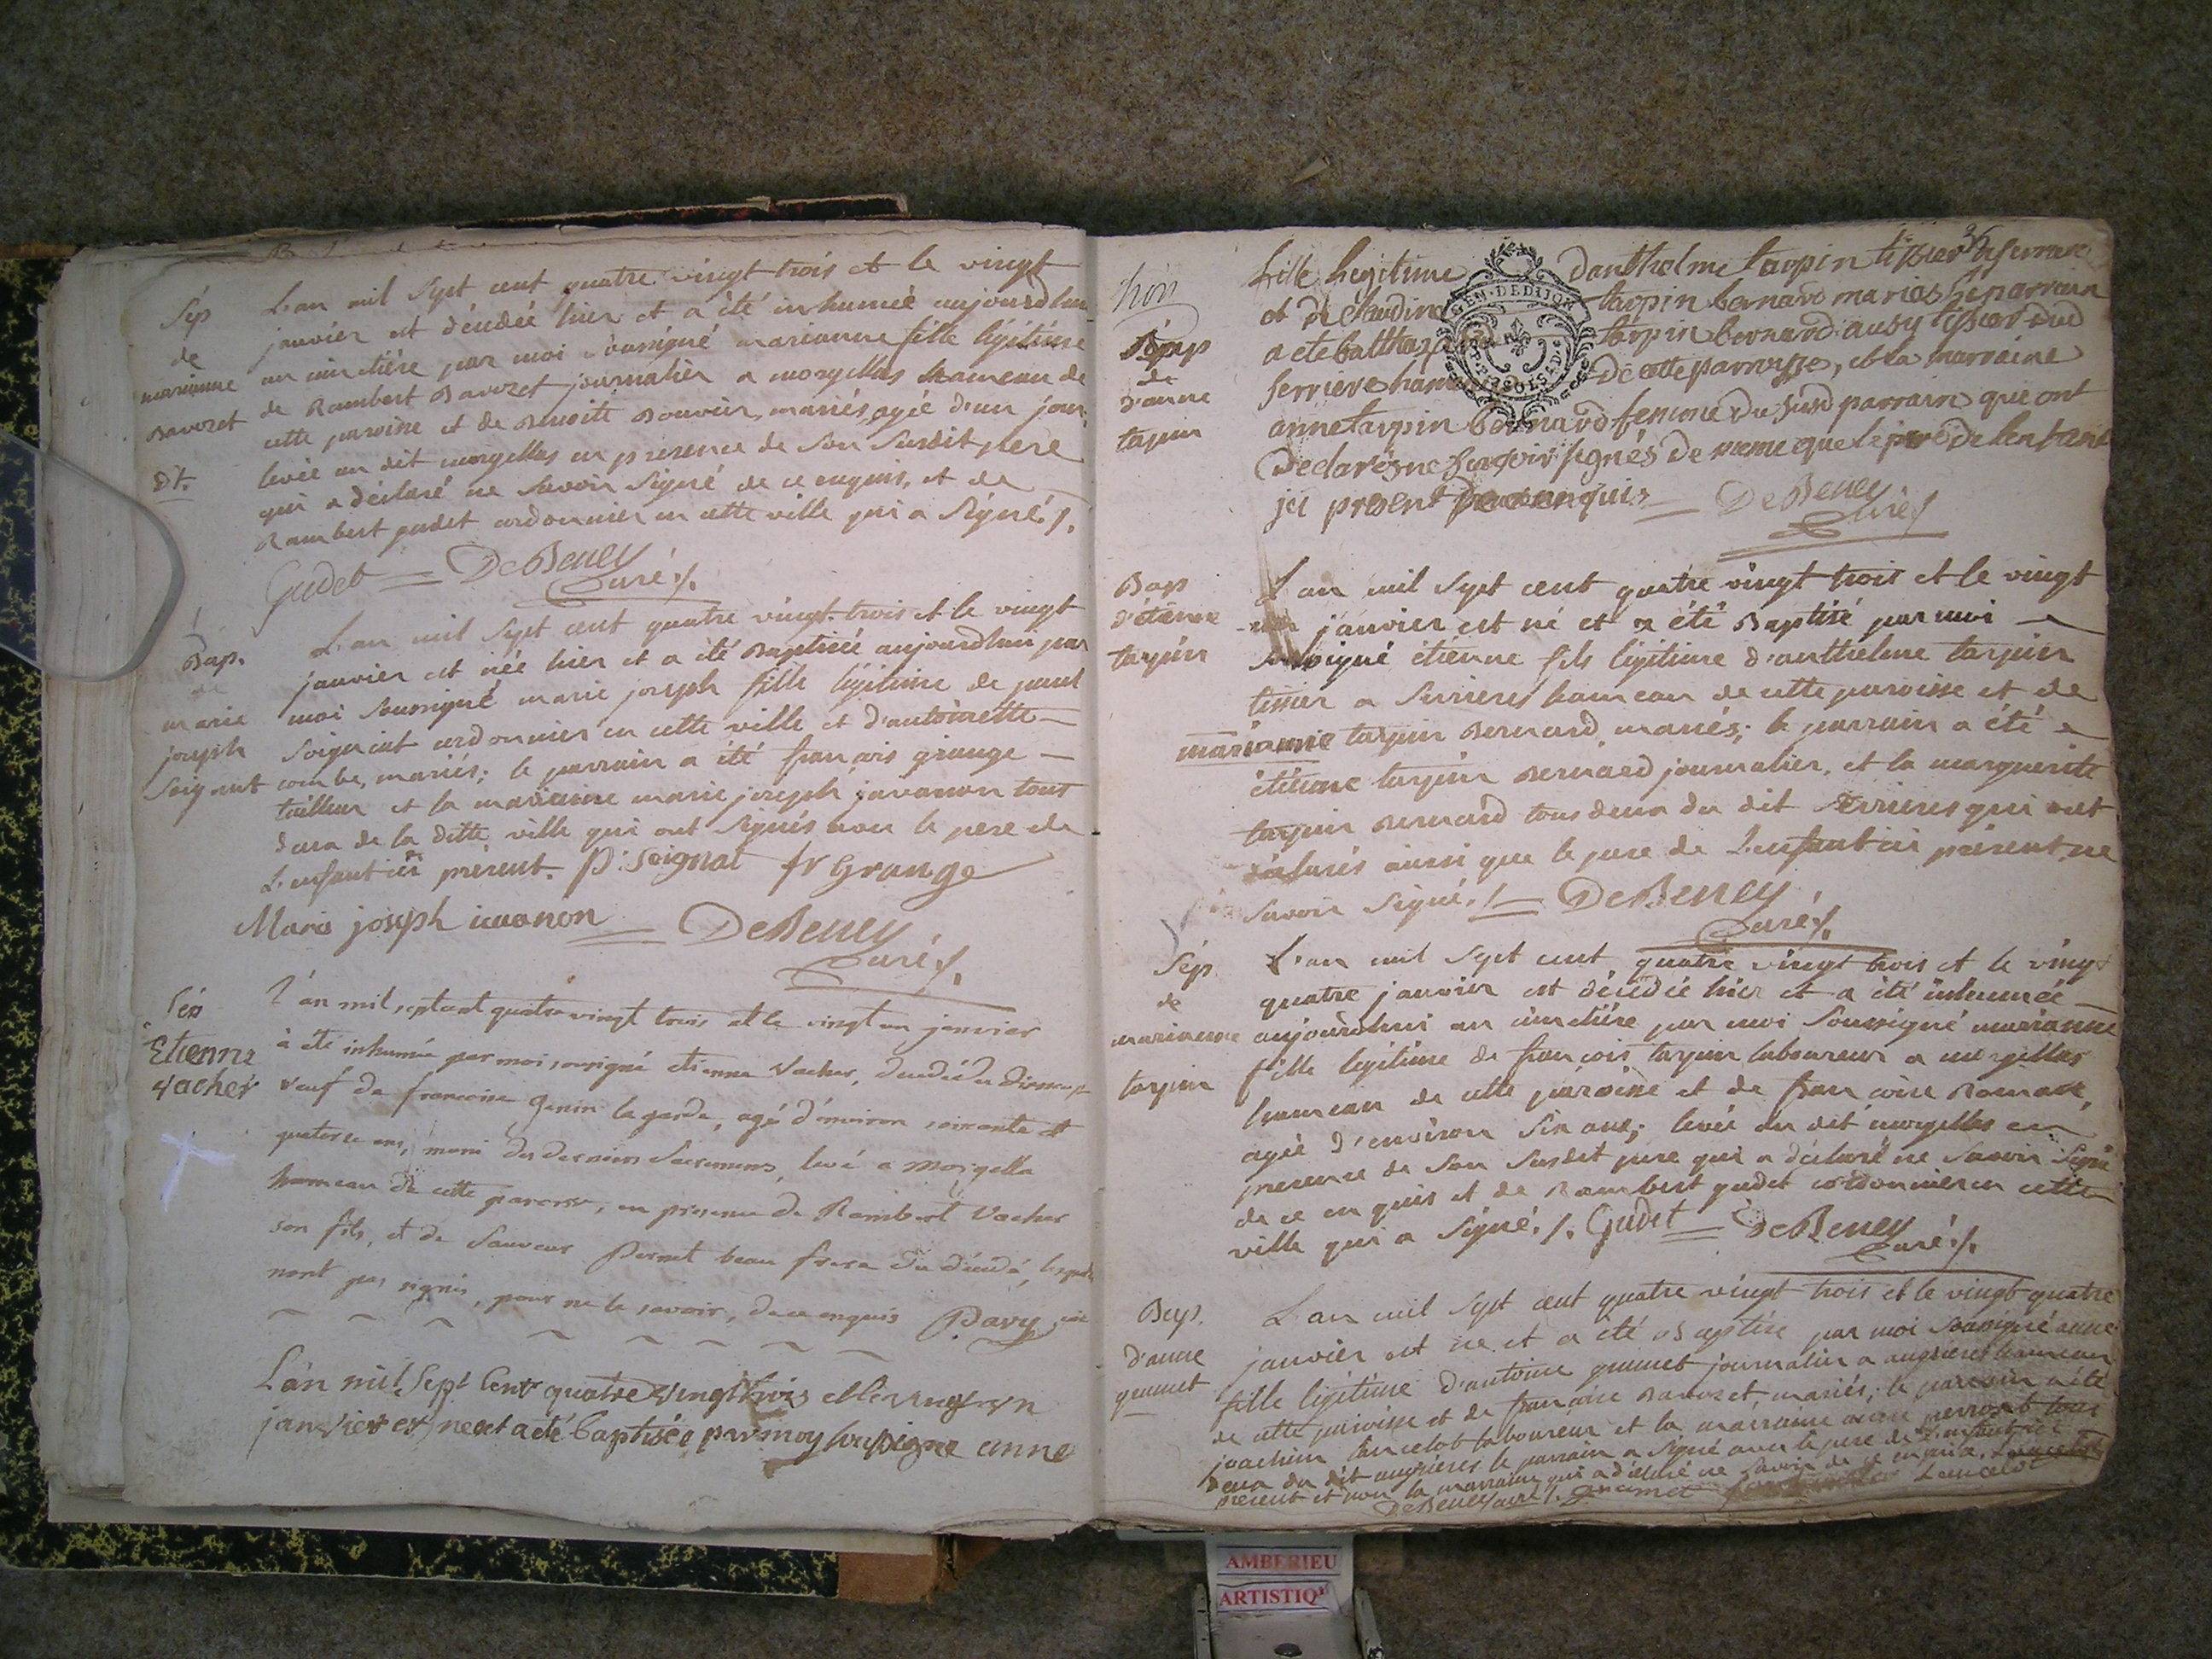 Sép
de
marianne
Bavozet
dt.
L'an mil sept cent quatre vingt trois et le vingt
janvier est décédée hier et a été inhumée aujourdhui
au cimetière par moi soussigné marianne fille légitime
de Rambert Bavozet journalier a morgellas hameau de
cette paroisse et de Benoite Bouvier, mariés, agée d'un jour,
levée au dit morgellas en présence de son susdit pere
qui a déclaré ne savoir signé de ce enquis, et de
Rambert gudet cordonnier en cette ville qui a signé./.
Gudet = DeBeney
Curé./.
Bap.
de
marie
joseph
Soignat
L'an mil sept cent quatre vingt-trois et le vingt
janvier est née hier et a été baptisée aujourdhui par
moi soussigné marie joseph fille légitime de paul
Soignat cordonnier en cette ville et d'antoinette
combe, mariés; le parrain a été françois grange
tailleur et la marraine marie joseph javanon tout
deux de la ditte ville qui ont signés avec le pere de
L'enfant ici present. P. Soignat fr Grange
Marie joseph iuvanon = DeBeney
Curé./.
Sép
Etienne
Vacher
L'an mil sept cent quatre vingt trois et le vingt un janvier
à été inhumé par moi soussigné etienne Vacher, decedé du
veuf de francoise genin la garde, agé d'environ soixante et
quatorze ans, muni des derniers Sacremens, levé a morgella
hameau de cette paroisse, en presence de Rambert Vacher
son fils, et de Sauveur Pernet beau frere du décédé, lesquels
nont pas signés, pour ne le savoir, de ce enquis Pavy, vic
L'an mil sept Cent quatre vingt trois et le vingt un
janvier est nee et a été baptisée par moy soussigne anne
36
Bap
de
d'anne
tarpin
fille legitime danthelme tarpin tissier a serriere
et de claudine tarpin bernard maries le parrain
a ete balthazard tarpin bernard aussy tissier dud
serriere hameau de cette parroisse, et la marraine
anne tarpin bernard femme du susd parrain qui ont
declarés ne scavoir signés de meme que le pere de lenfant
ici present de ce enquis = DeBeney
Curé./
Bap
d'étienne
tarpin
L'an mil sept cent quatre vingt trois et le vingt
janvier est né et a été baptisé par moi
soussigné étienne fils légitime d'anthelme tarpin
tissier a serrieres hameau de cette paroisse et de
marianne tarpin Bernard, mariés; le parrain a été
étienne tarpin Bernard journalier, et la marguerite
tarpin Bernard tous deux du dit serrieres qui ont
déclarés ainsi que le pere de L'enfant ici présent, ne
savoir signé./. = DeBeney
Curé./.
Sép
de
marianne
tarpin
L'an mil sept cent quatre vingt trois et le vingt
quatre janvier est décédée hier et a été inhumée
aujourdhui au cimetière par moi soussigné marianne
fille légitime de françois tarpin laboureur a morgellas
hameau de cette paroisse et de françoise
agée d'environ six ans; levée du dit morgellas en
presence de son susdit pere qui a déclaré ne savoir signé
de ce enquis et de Rambert gudet cordonnier en cette
ville qui a signé./. Gudet = DeBeney
Curé./.
Bap.
d'anne
L'an mil sept cent quatre vingt trois et le vingt quatre
janvier est ne et a été baptisée par moi soussigné anne
fille légitime d'antoine journalier a hameau
de cette paroisse et de françoise Bavozet mariés; le parrain a été
joachim Lancelot laboureur et la marraine tous
deux du dit le parrain a signé avec le pere de L'enfant ici
présent et non la marraine qui a déclaré ne savoir de ce enquis.
DeBeney curé./. Lancelot
AMBERIEU
ARTISTIQ